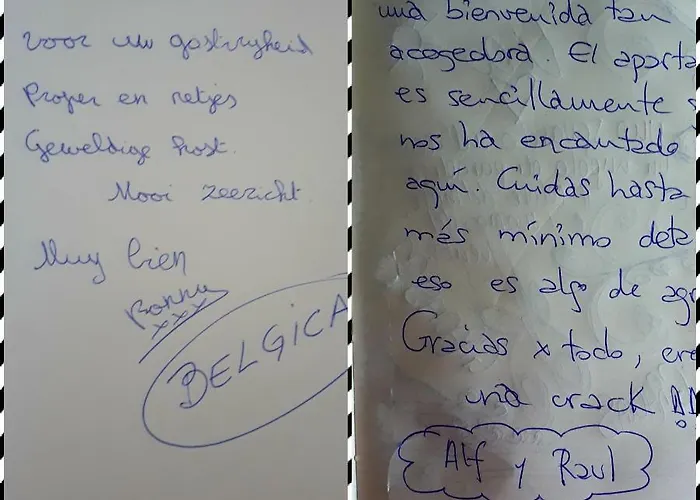 voor uw gastvrijheid
Proper en netjes
Geweldige host.
Mooi zeezicht.
Muy bien
xxx
BELGICA
una bienvenida tan
acogedora. El aparta
es sencillamente
nos ha encantado
aquí. Cuidas hasta
más mínimo deta
eso es algo de agr
Gracias x todo, ere
una crack !!
Alf y Raul